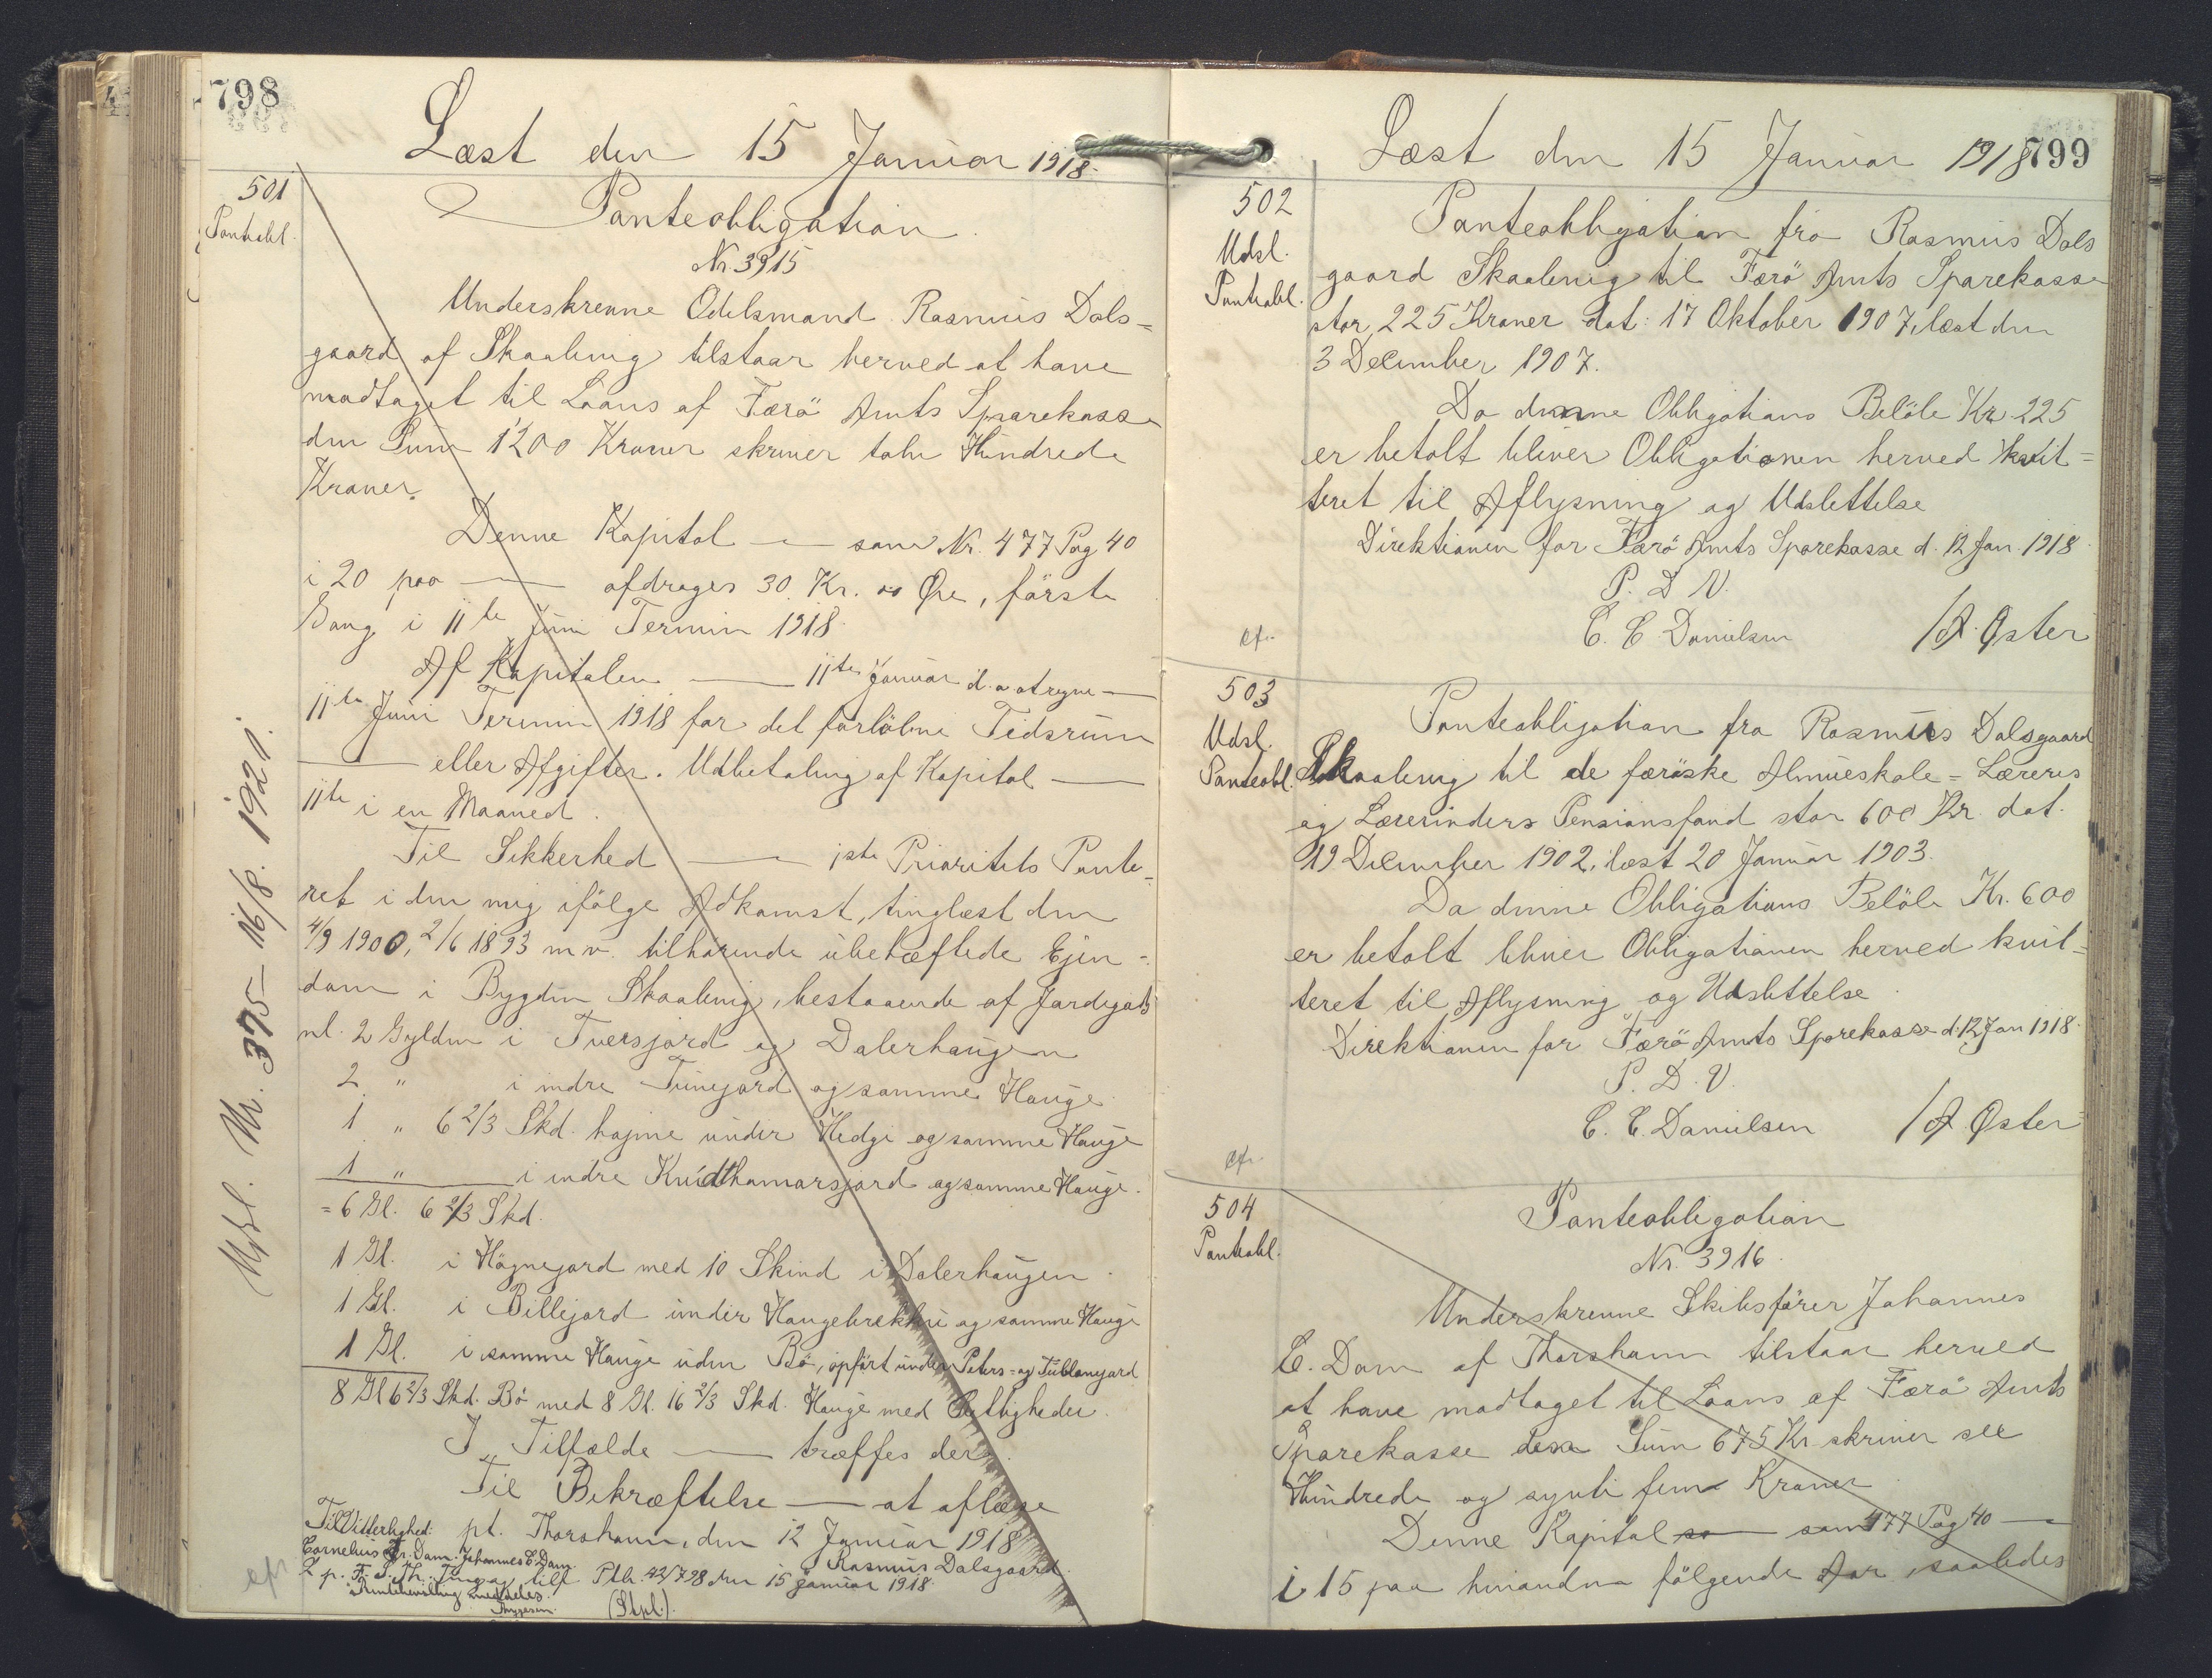 798
Læst den 15 Januar 1918.
501
Panteobl.
Panteobligation.
Nr. 3915
Underskrevne Odelsmand Rasmus Dals=
gaard af Skaalevig tilstaar herved at have
modtaget til Laans af Færö Amts Sparekasse
den Sum 1200 Kroner skriver tolv Hundrede
Kroner.
Denne Kapital — som Nr. 477 Pag 40
i 20 paa — afdrages 30 Kr. 00 Øre, første
Gang i 11te Juni Termin 1918.
Af Kapitalen — 11te Januar d. a. at regne —
11te Juni Termin 1918 for det forløbne Tidsrum
— eller Afgifter. Udbetaling af Kapital —
11te i en Maaned.
Til Sikkerhed — 1ste Prioritets Pante-
ret i den mig ifölge Adkomst, tinglæst den
4/9 1900, 2/6 1893 m v. tilhørende ubehæftede Ejen-
dom i Bygden Skaalevig, bestaaende af Jordegods
nl. 2 Gylden i Tversjord og Dalerhaugen
2 " i indre Tunejord og samme Hauge
1 " 6 2/3 Skd. hajme under Hedge og samme Hauge
1 " i indre Knidthamarsjord og samme Hauge.
= 6 Gl. 6 2/3 Skd.
1 Gl. i Högnejord med 10 Skind i Dalerhaugen.
1 Gl. i Billejord under Haugebrekku og samme Hauge
1 Gl. i samme Hauge uden Bö, opført under Peters- og Tublanejord
8 Gl 6 2/3 Skd. Bö med 8 Gl. 16 2/3 Skd. Hauge med Herligheder.
I Tilfælde — træffes der.
Til Bekræftelse — at aflæse
Til Vitterlighed: pt. Thorshavn, den 12 Januar 1918
Cornelius Fr. Dam. Johannes E. Dam. Rasmus Dalsgaard.
L p. F. S. Th. Tinga tilf Ptb. 42/798 den 15 Januar 1918.
Amtsbevilling meddeles.
(Stpl.).
Udsl. Nr. 375 - 16/8. 1921.
cfr
Læst den 15 Januar 1918
799
502
Udsl.
Panteobl.
Panteobligation fra Rasmus Dals
gaard Skaalevig til Færö Amts Sparekasse
stor 225 Kroner dat: 17 Oktober 1907, læst den
3 December 1907.
Da denne Obligations Beløb Kr. 225
er betalt bliver Obligationen herved kvit=
teret til Aflysning og Udslettelse
Direktionen for Færö Amts Sparekasse d. 12 Jan. 1918.
P. D V.
C. C. Danielsen / A. Øster
cfr.
503
Udsl.
Panteobl.
Panteobligation fra Rasmus Dalsgaard
Skaalevig til de færøske Almueskole = Læreres
og Lærerinders Pensionsfond stor 600 Kr. dat.
19 December 1902, læst 20 Januar 1903.
Da denne Obligations Beløb Kr. 600
er betalt bliver Obligationen herved kvit=
teret til Aflysning og Udslettelse.
Direktionen for Færö Amts Sparekasse d. 12 Jan 1918.
P. D. V.
C. C. Danielsen / A Øster
cfr.
504
Panteobl.
Panteobligation
Nr. 3916.
Underskrevne Skibsfører Johannes
E. Dam af Thorshavn tilstaar herved
at have modtaget til Laans af Færö Amts
Sparekasse den Sum 675 Kr. skriver sex
Hundrede og syvti fem Kroner.
Denne Kapital — som 477 Pag 40 —
i 15 paa hinanden følgende Aar, saaledes